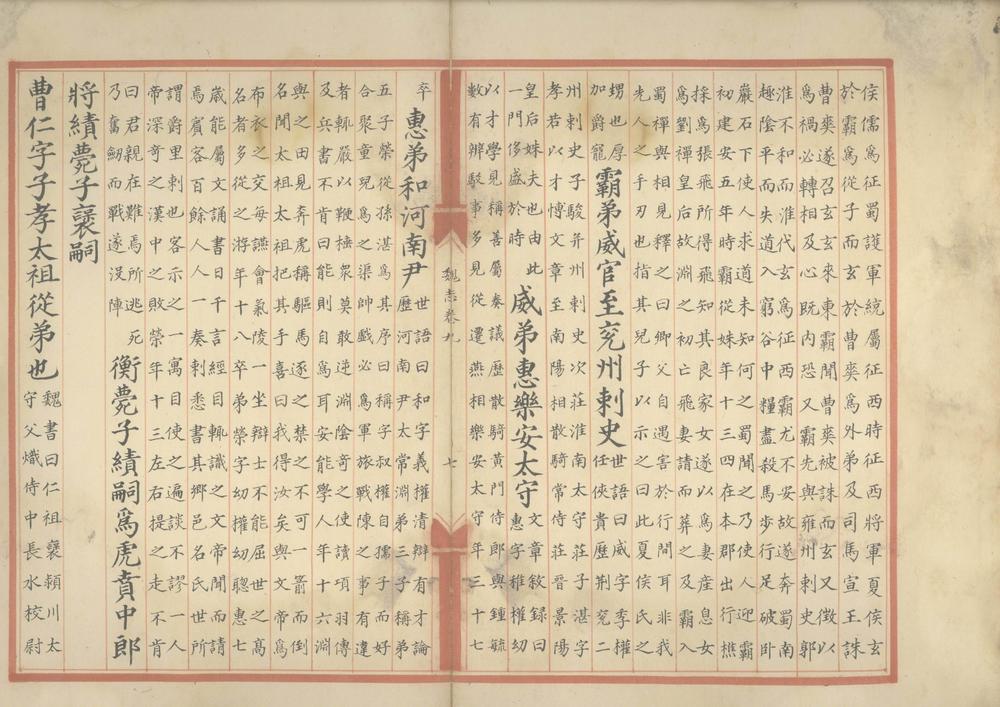 侯儒為征蜀護軍統屬征西時征西將軍夏侯玄
於霸為從子而玄於曹爽為外弟及司馬宣王誅
曹爽遂召玄玄來東霸聞曹爽被誅而玄又徵以
為禍必轉相及心既內恐又霸先與雍州刺史郭
淮不和而淮代玄為征西霸尤不安故遂奔蜀南
趨陰平而失道入窮谷中糧盡殺馬步行足破臥
巖石下使人求道未知何之蜀聞之乃使人迎霸
初建安五年時霸從妹年十三四在本郡出行樵
採為張飛所得飛知其良家女遂以為妻產息女
為劉禪皇后故淵之初亡飛妻請而葬之及霸入
蜀禪與相見釋之曰卿父自遇害於行間耳非我
先人之手刃也指其兒子以示之曰此夏侯氏之
甥也厚
加爵寵
霸弟威官至兗州刺史
世語曰威字季權
任俠貴歷荊兗二
州刺史子駿并州刺史次莊淮南太守莊子湛字
孝若以才博文章至南陽相散騎常侍莊晉景陽
皇后姊妹夫也由此
一門侈盛於時
威弟惠樂安太守
文章敘錄曰
惠字稚權幼
以才學見稱善屬奏議歷散騎黃門侍郎與鍾毓
數有辨駁事多見從遷燕相樂安太守年三十七
魏志卷九
七
卒
惠弟和河南尹
世語曰和字義權清辯有才論
歷河南尹太常淵弟三子稱弟
五子榮從孫湛為其序曰稱字叔權自孺子而好
合聚童兒為之渠帥戲必為軍旅戰陳之事有違
者輒嚴以鞭捶眾莫敢逆淵陰奇之使讀項羽傳
及兵書不肯曰能則自為耳安能學人年十六淵
與之田見奔虎稱驅馬逐之禁之不可一箭而倒
名聞太祖太祖把其手喜曰我得汝矣與文帝為
布衣之交每讌會氣陵一坐辯士不能屈世之高
名者多從之游年十八卒弟榮字幼權幼聰惠七
歲能屬文誦書日千言經目輒識之文帝聞而請
焉賓客百餘人人一奏刺悉書其鄉邑名氏世所
謂爵里刺也客示之一寓目使之遍談不謬一人
帝深奇之漢中之敗榮年十三左右提之走不肯
曰君親在難焉所逃死
乃奮劒而戰遂沒陣
衡薨子績嗣為虎賁中郎
將績薨子襃嗣
曹仁字子孝太祖從弟也
魏書曰仁祖襃潁川太
守父熾侍中長水校尉